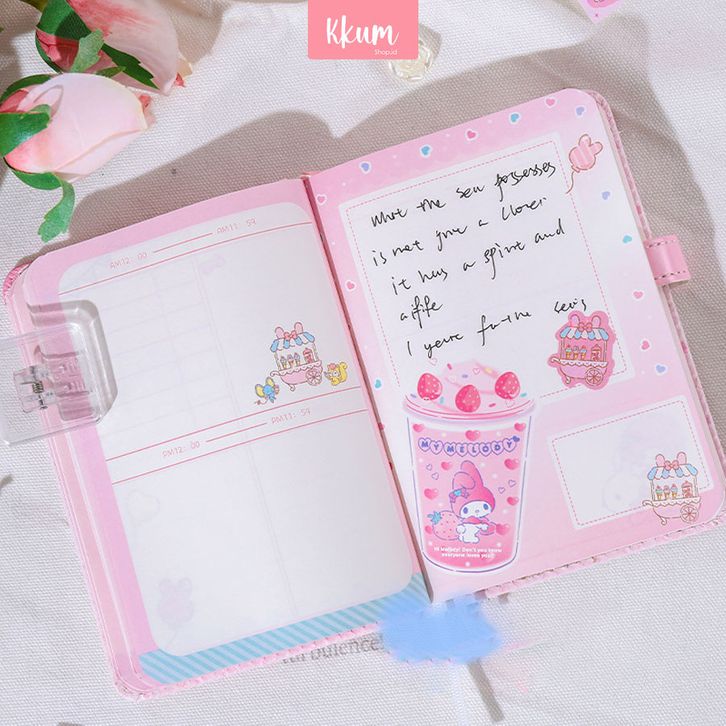 Kkum
Shop.id
AM12: 00
AM11: 59
PM12: 00
PM11: 59
what the sea possesses
is not give a
it has a spirit and
a life
I
MY MELODY
Hi Melody! Don't you know
everyone loves you?
turbulence!